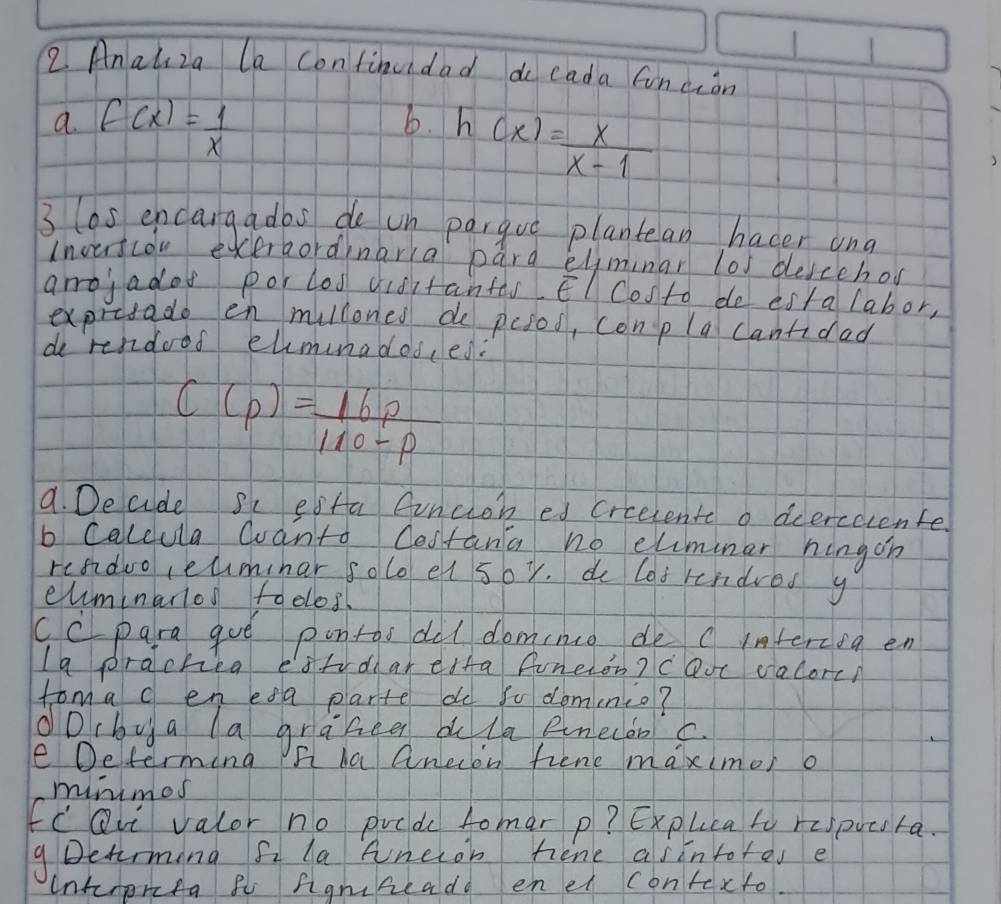 2. Analiza la continuidad de cada función
a. f(x) = 1/x b. h(x) = x/(x-1)
3 los encargados de un parque plantean hacer una
inversion extraordinaria para eliminar los desechos
arrojados por los visitantes. El Costo de esta labor,
expresado en millones de pesos, con p la cantidad
de residuos eliminados, es:
C(p) = 16p/(110-p)
a. Decide si esta función es creciente o decreciente.
b Calcula Cuanto Costaria no eliminar ningún
residuo, eliminar solo el 50%. de los residuos y
eliminarlos todos.
c ¿ para qué puntos del dominio de C interesa en
la práctica estudiar esta función? ¿Que valores
toma c en esa parte de su dominio?
d Dibuja la gráfica de la función C.
e Determina si la función tiene maximos o
minimos
f ¿Qué valor no puede tomar p? Explica tu respuesta.
g Determina Si la función tiene asintotas e
interpreta su significado en el contexto.